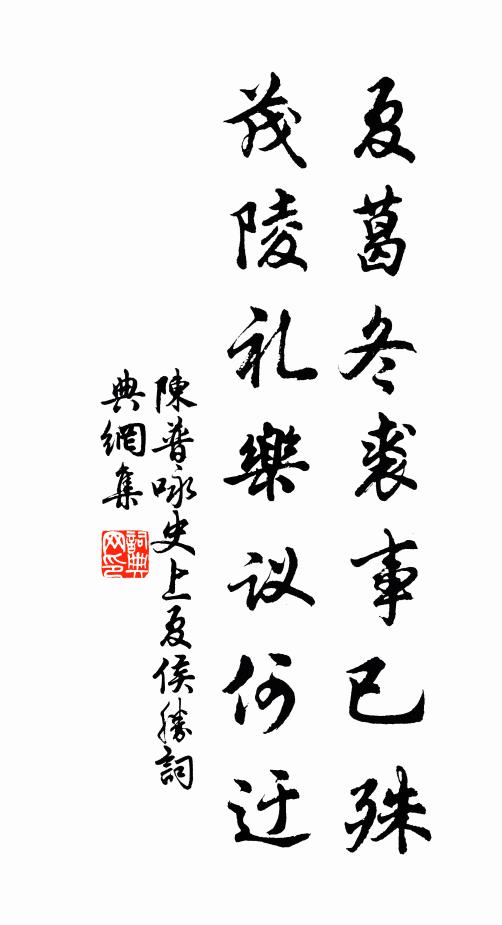 夏葛冬裘事已殊
茂陵礼樂议何迂
陳普咏史上夏侯勝詞
典網集
詞典网印